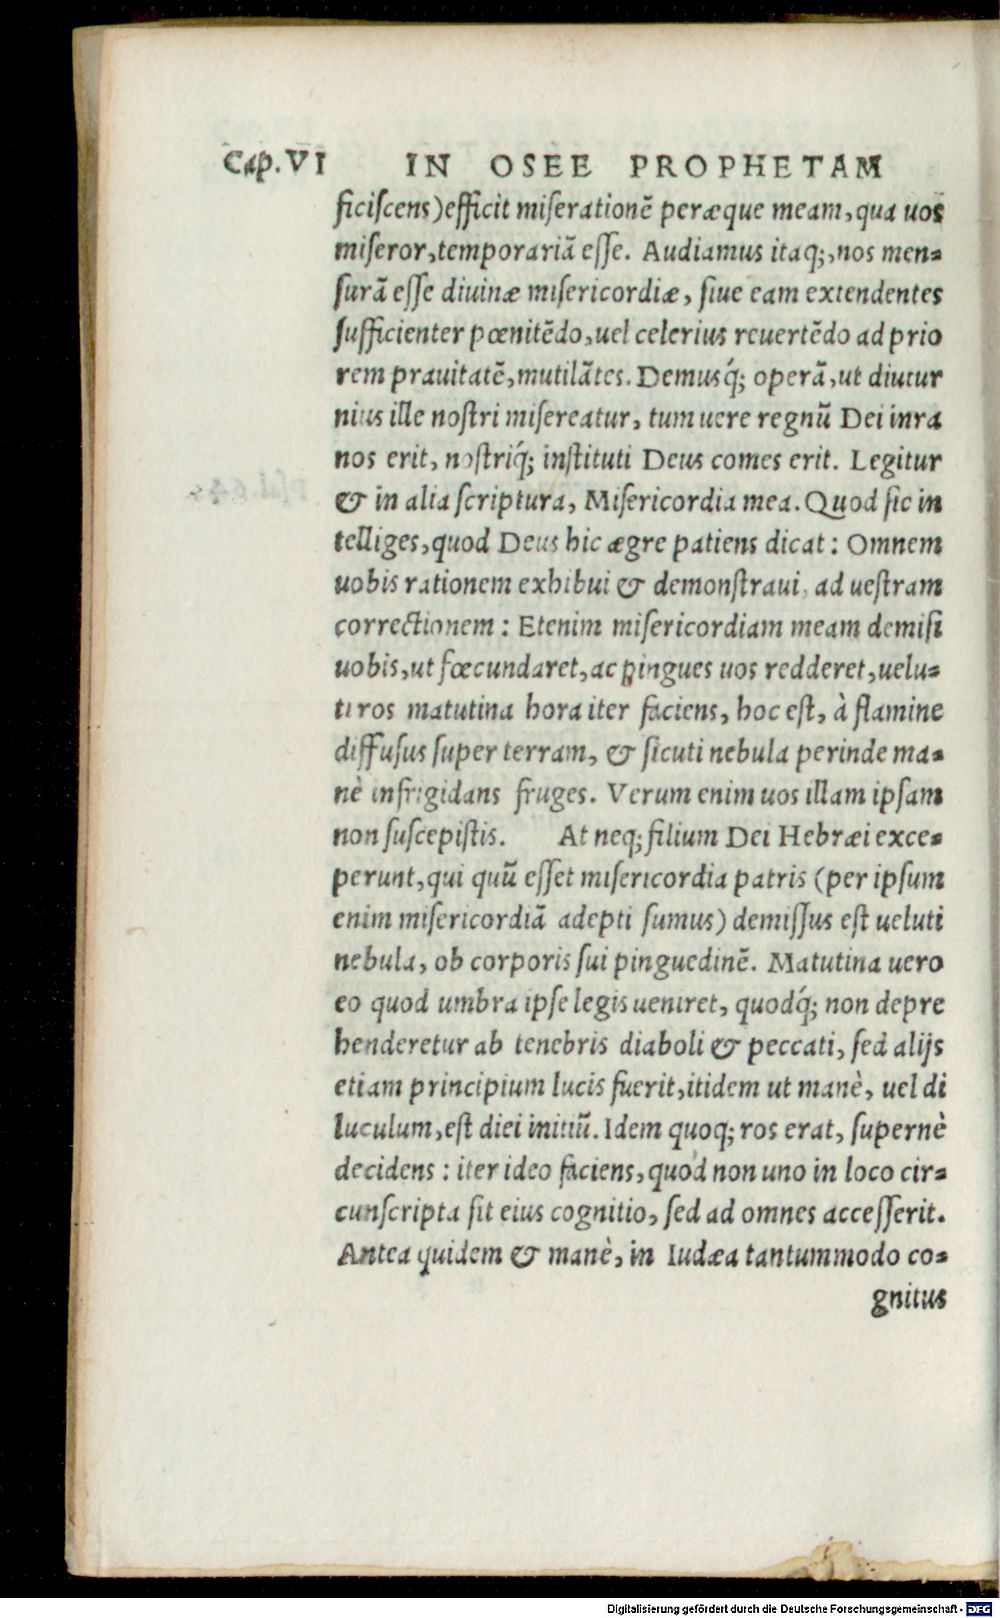 Cap. VI IN OSEE PROPHETAM
ficiſcens) efficit miſerationē peræque meam, qua uos
miſeror, temporariā eſſe. Audiamus itaq;, nos men-
ſurā eſſe diuinæ miſericordiæ, ſiue eam extendentes
ſufficienter pœnitēdo, uel celerius reuertēdo ad prio
rem prauitatē, mutilātes. Demusq́; operā, ut diutur
nius ille noſtri miſereatur, tum uere regnū Dei inra
nos erit, noſtriq́; inſtituti Deus comes erit. Legitur
& in alia ſcriptura, Miſericordia mea. Quod ſic in
telliges, quod Deus hic ægre patiens dicat: Omnem
uobis rationem exhibui & demonſtraui, ad ueſtram
correctionem: Etenim miſericordiam meam demiſi
uobis, ut fœcundaret, ac pingues uos redderet, uelu-
ti ros matutina hora iter faciens, hoc eſt, à flamine
diffuſus ſuper terram, & ſicuti nebula perinde ma-
nè infrigidans fruges. Verum enim uos illam ipſam
non ſuſcepiſtis. At neq; filium Dei Hebræi exce-
perunt, qui quū eſſet miſericordia patris (per ipſum
enim miſericordiā adepti ſumus) demiſſus eſt ueluti
nebula, ob corporis ſui pinguedinē. Matutina uero
eo quod umbra ipſe legis ueniret, quodq́; non depre
henderetur ab tenebris diaboli & peccati, ſed alijs
etiam principium lucis fuerit, itidem ut manè, uel di
luculum, eſt diei initiū. Idem quoq; ros erat, ſupernè
decidens: iter ideo faciens, quod non uno in loco cir-
cunſcripta ſit eius cognitio, ſed ad omnes acceſſerit.
Antea quidem & manè, in Iudæa tantummodo co-
gnitus
Digitalisierung gefördert durch die Deutsche Forschungsgemeinschaft - DFG